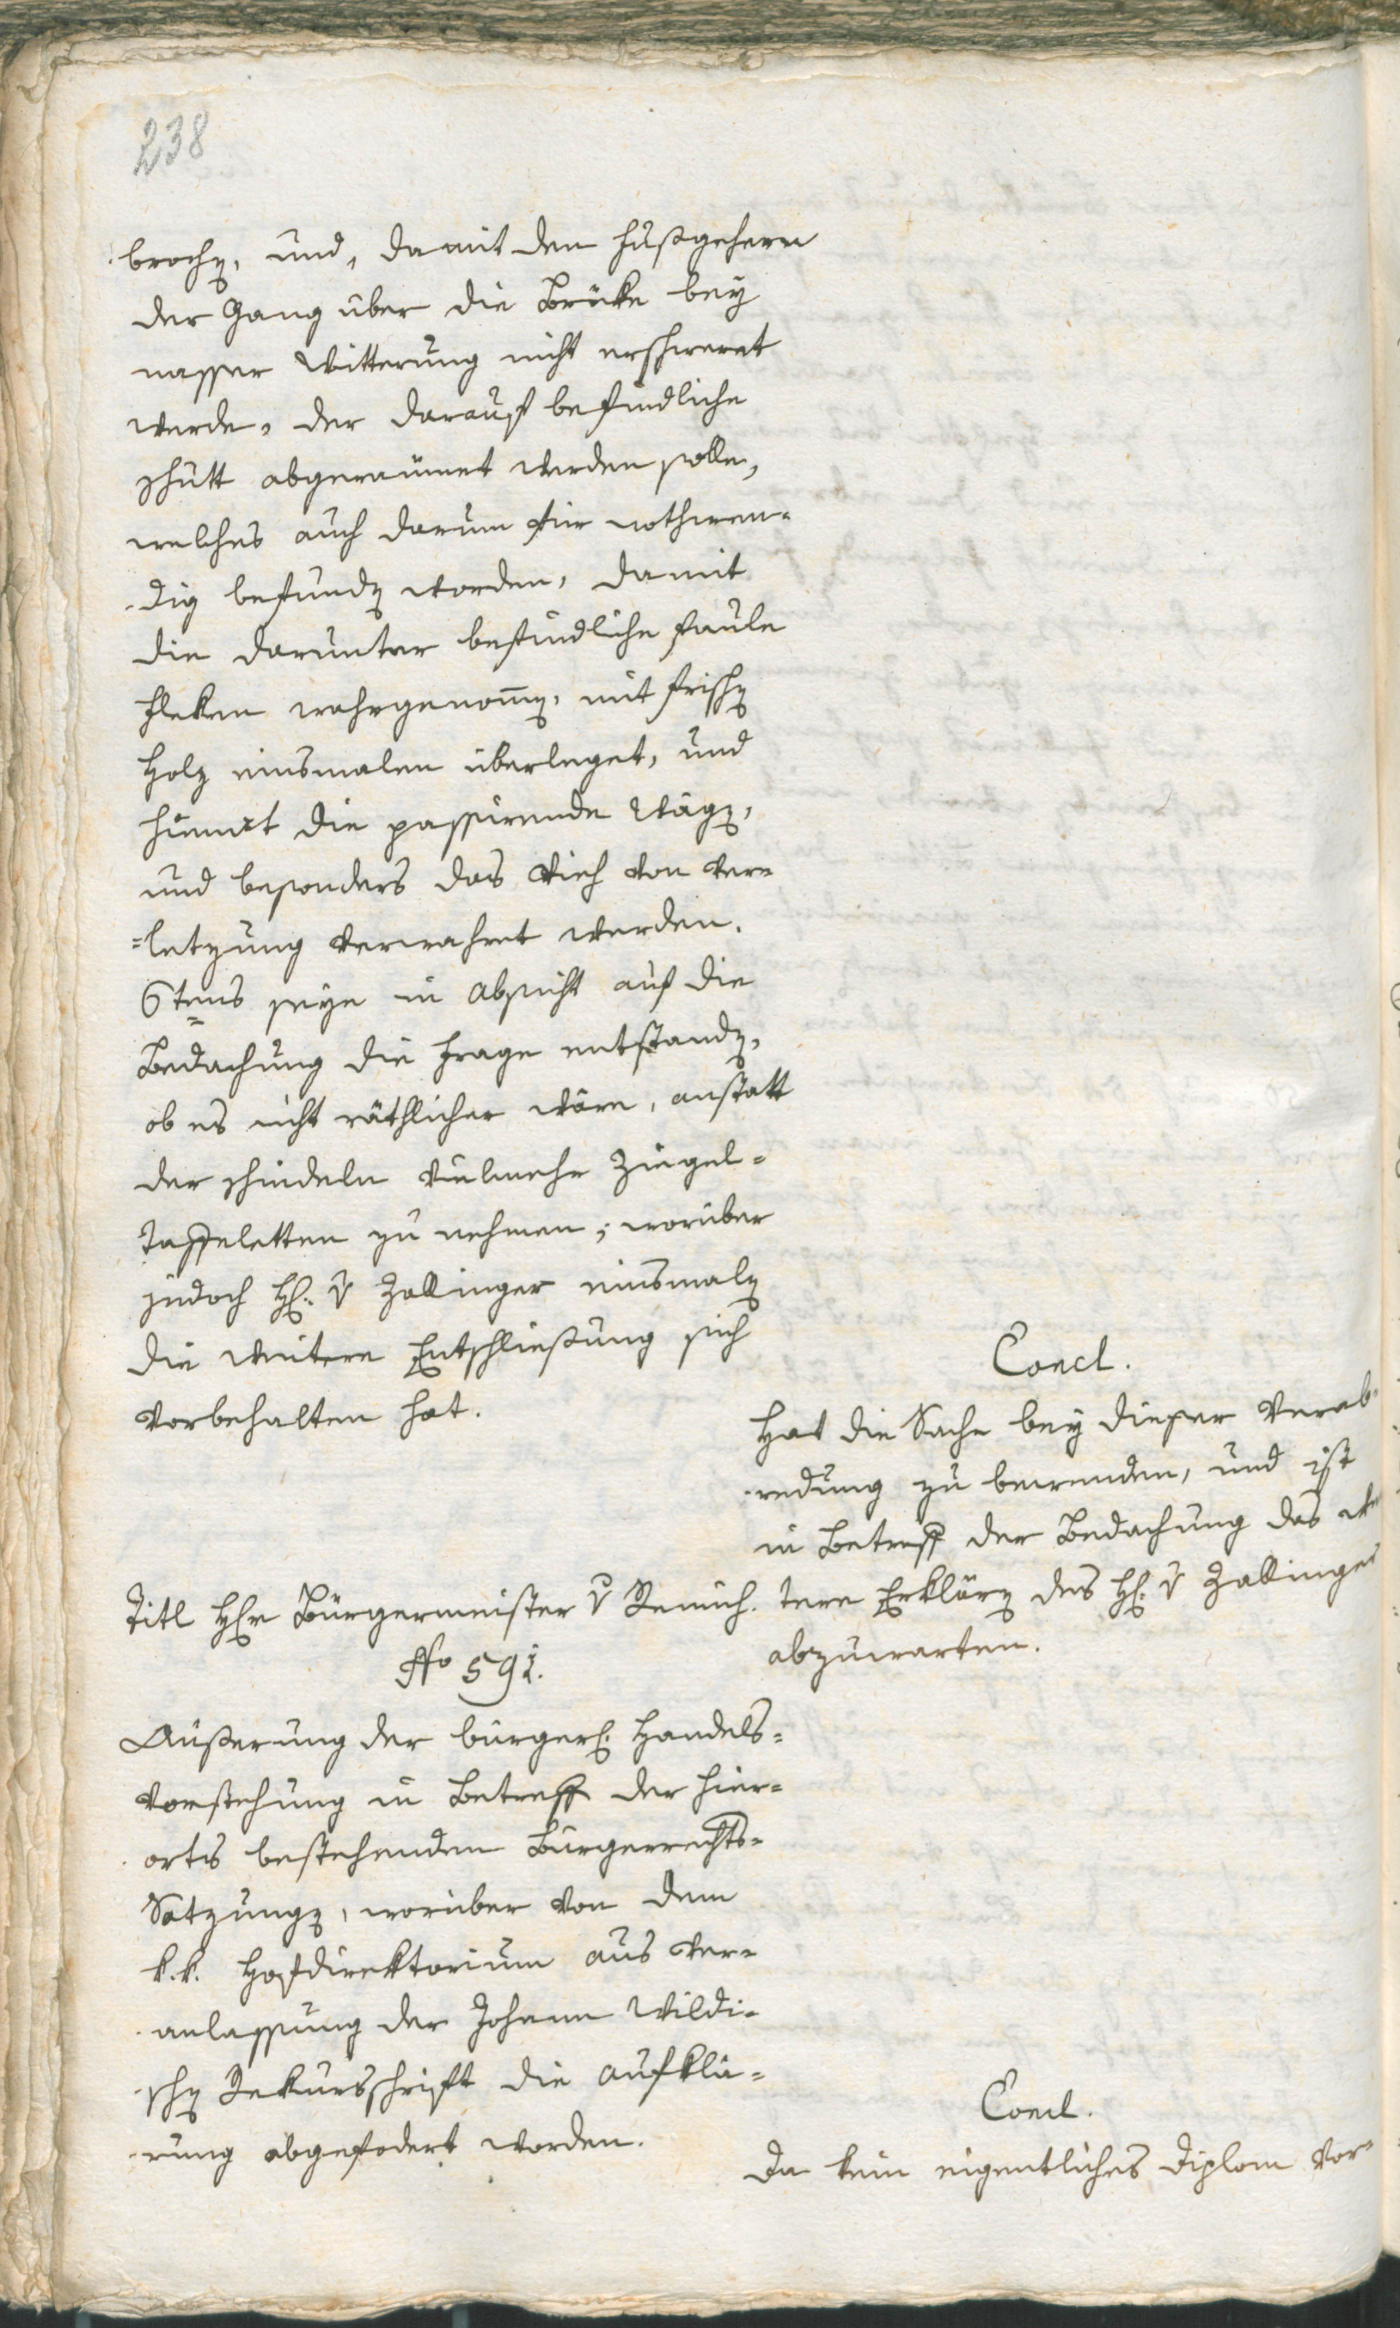 238
broch(en), und, damit den Fußgehern
der Gang über die Brüke bey
nasser Witterung nicht erschweret
werde, der darauf befindliche
Schutt abgeraümet werden solle,
welches auch darum für nothwen-
dig befund(en) worden, damit
die darunter befindliche faule
Fleken wahrgenom̅(en), mit frisch(en)
Holz einsmalen überleget, und
hiemit die passirende Wäg(en),
und besonders das Vieh von Ver-
=letzung verwahret werden.
6tens seye in Absicht auf die
Bedachung die Frage entstand(en),
ob es nicht räthlicher wäre, anstatt
der Schindeln vielmehr Ziegel-
Taffeletten zu nehmen; worüber
jedoch H: v Zallinger einsmal(en)
die weitere Entschließung sich
vorbehalten hat.
Concl.
Hat die Sache bey dieser Verab-
redung zu bewenden, und ist
in Betreff der Bedachung das wei
tere Erklär(en) des H: v Zallinger
abzuwarten.
Titl Herr Bürgermeister v Remich.
No 591.
Äußerung der bürgerl: Handels-
Vorstehung in Betreff der hier-
orts bestehenden Bürgerrechts-
Satzung(en), worüber von dem
k.k. Hofdirektorium aus Ver-
anlassung der Johann Wildi-
sch(en) Rekursschrift die Aufklä-
rung abgefodert worden.
Concl.
Da kein eigentliches Diplom vor-